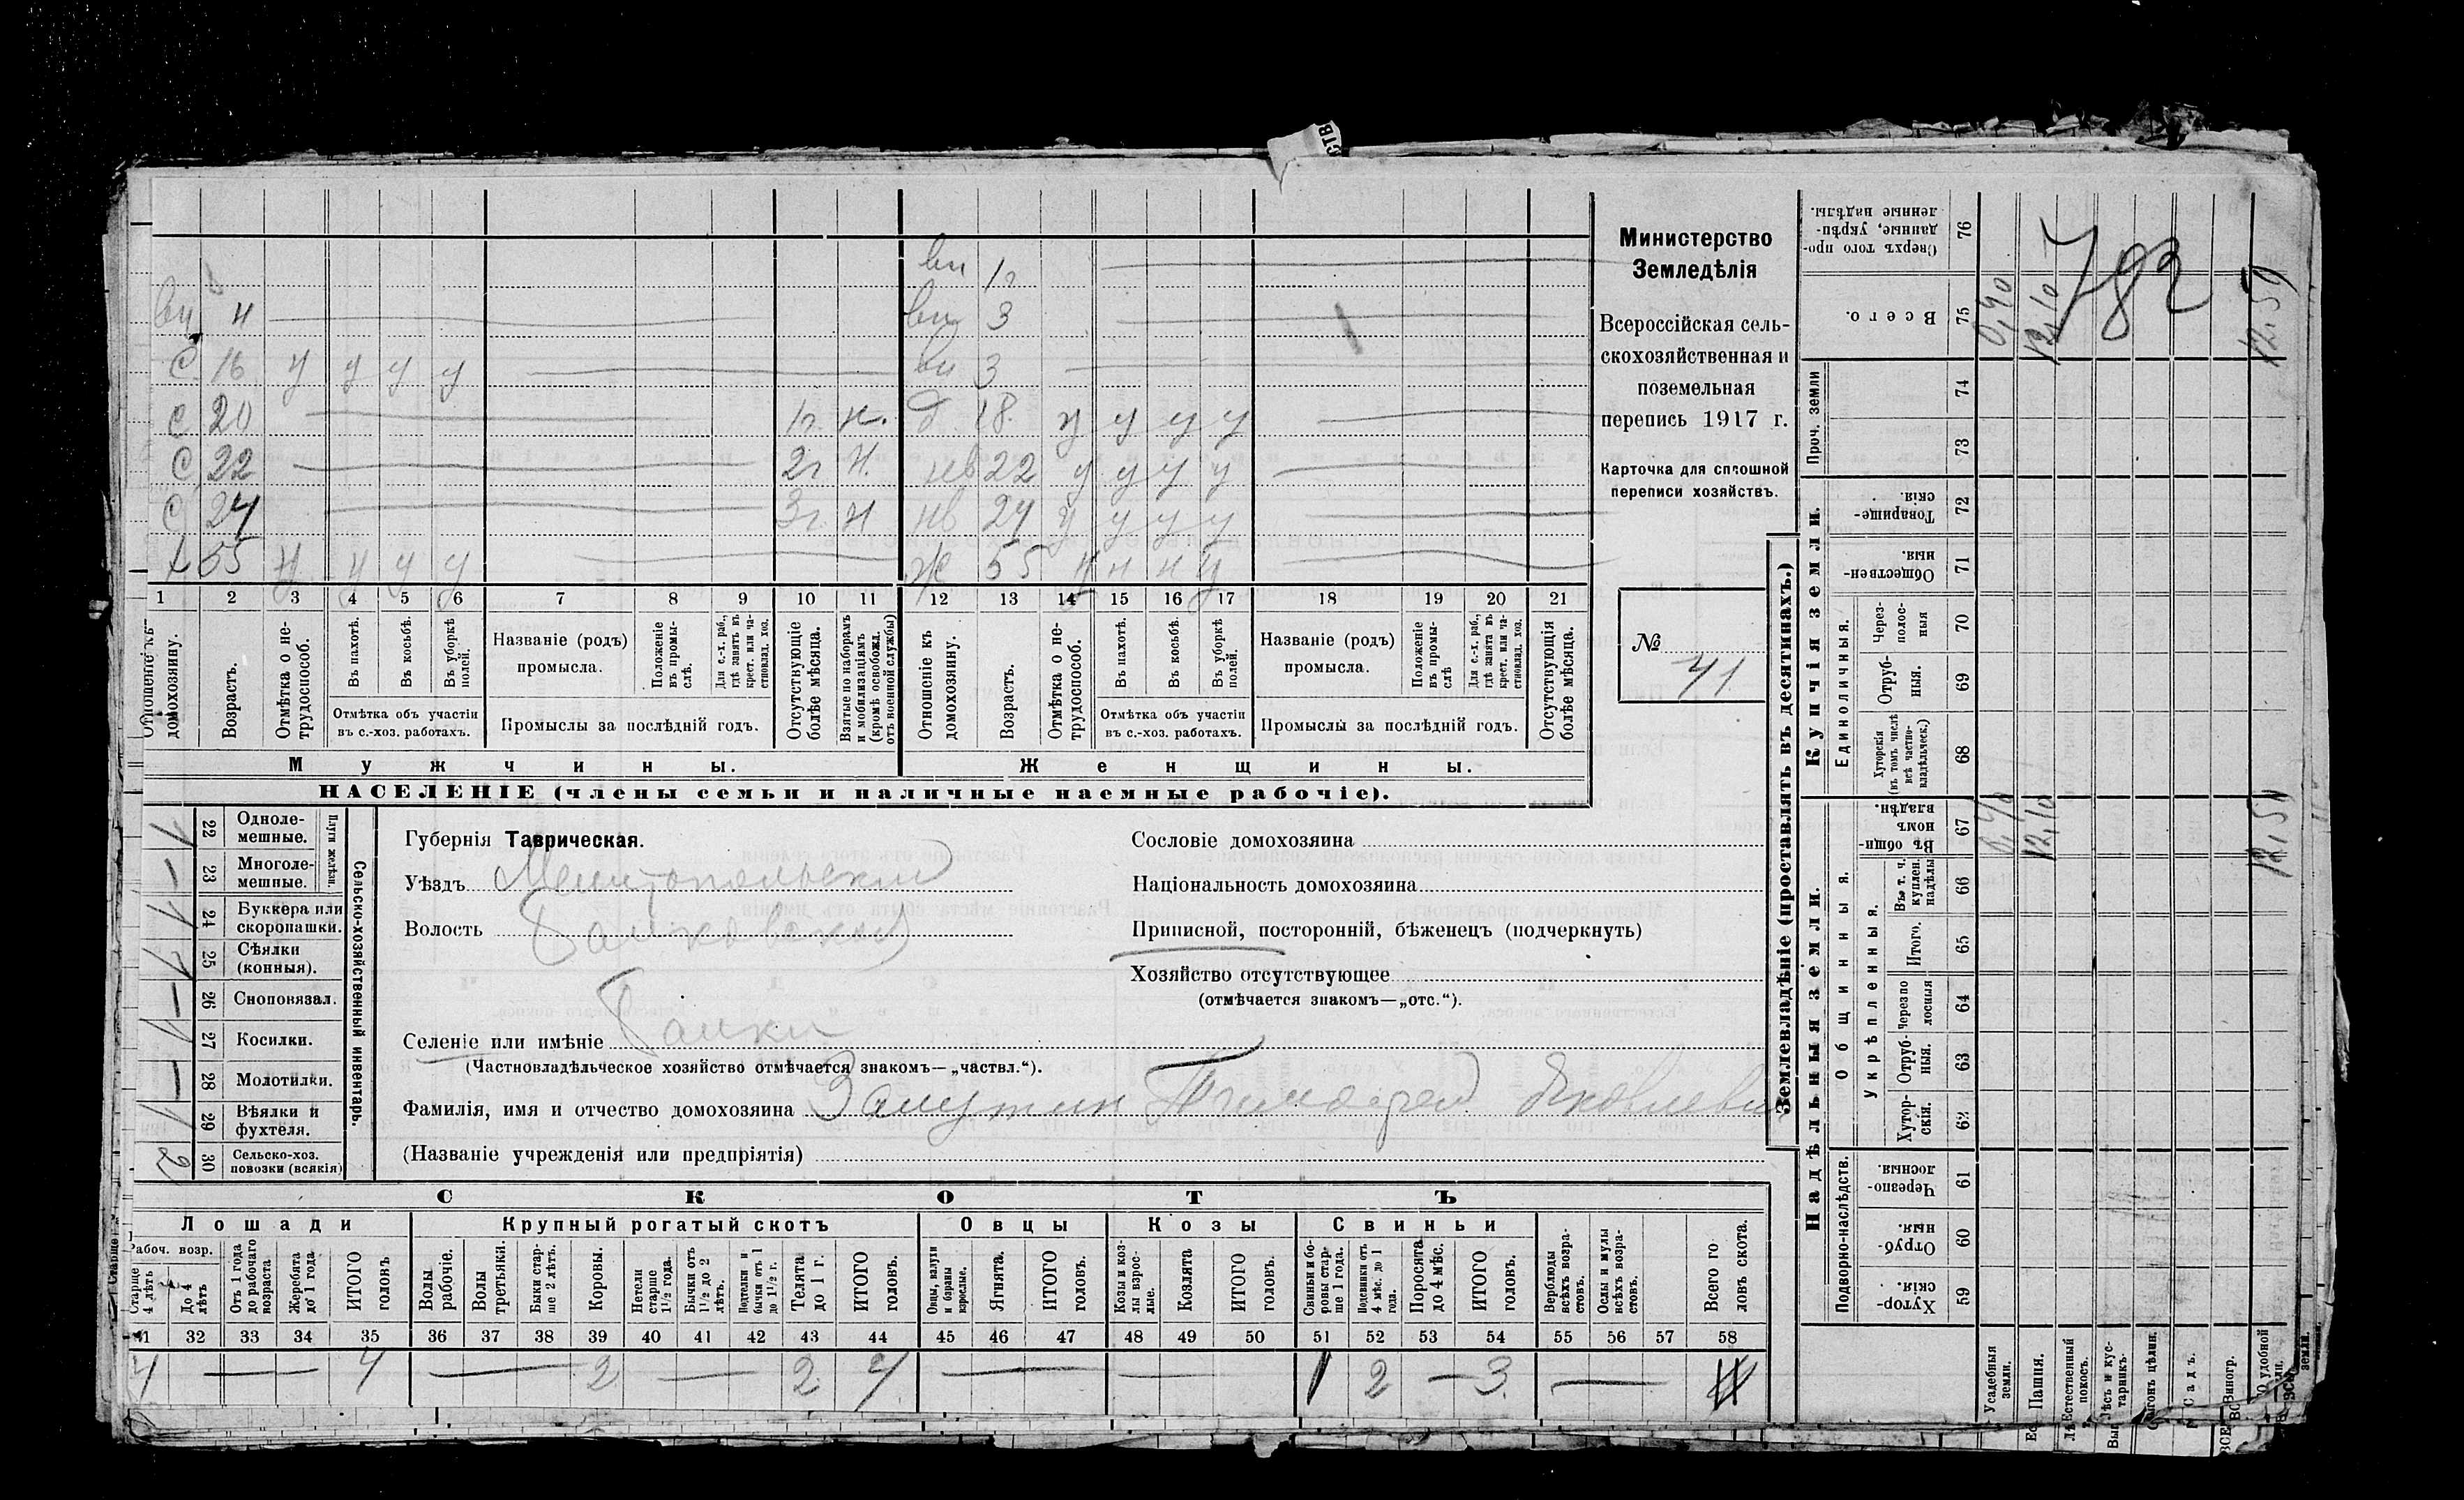 вн 1г
вн 4 вн 3
с 16 у у у у вн 3
с 20 1г. н. д. 18. у у у у
с 22 2г н. нв 22 у у у у
с 24 3г н нв 24 у у у у
х 55 н у у у ж 55 у н н у
1 2 3 4 5 6 7 8 9 10 11 12 13 14 15 16 17 18 19 20 21
Отношеніе къ домохозяину.
Возрастъ.
Отмѣтка о не-трудоспособ.
Въ пахотѣ.
Въ косьбѣ.
Въ уборкѣ полей.
Отмѣтка объ участіи
въ с.-хоз. работахъ.
Названіе (родъ)
промысла.
Положеніе въ промы-слѣ.
Для с.-х. раб., гдѣ занятъ въ крест. или ча-стновлад. хоз.
Промыслы за послѣдній годъ.
Отсутствующіе болѣе мѣсяца.
Взятые по наборамъ и мобилизаціямъ (кромѣ освобожд. отъ военной службы)
Отношеніе къ домохозяину.
Возрастъ.
Отмѣтка о не-трудоспособ.
Въ пахотѣ.
Въ косьбѣ.
Въ уборкѣ полей.
Отмѣтка объ участіи
въ с.-хоз. работахъ.
Названіе (родъ)
промысла.
Положеніе въ промы-слѣ
Для с.-х. раб., гдѣ занята въ крест. или ча-стновлад. хоз.
Промыслы за послѣдній годъ.
Отсутствующія болѣе мѣсяца.
Мужчины. Женщины.
НАСЕЛЕНІЕ (члены семьи и наличные наемные рабочіе).
Министерство
Земледѣлія
Всероссійская сель-
скохозяйственная и
поземельная
перепись 1917 г.
Карточка для сплошной
переписи хозяйствъ.
№ 41
1 22 Однолемешные.
— 23 Многолемешные.
Плуги желѣзн.
1 24 Буккера или скоропашки.
1 25 Сѣялки (конныя).
— 26 Сноповязал.
1 27 Косилки.
— 28 Молотилки.
1 29 Вѣялки и фухтеля.
2 30 Сельско-хоз. повозки (всякія)
Сельско-хозяйственный инвентарь.
Губернія Таврическая.
Уѣздъ Мелитопольский
Волость Балковская
Селеніе или имѣніе Балки
(Частновладѣльческое хозяйство отмѣчается знакомъ—„частвл.“).
Фамилія, имя и отчество домохозяина Тимофей Яковлевич
(Названіе учрежденія или предпріятія)
Сословіе домохозяина
Національность домохозяина
Приписной, посторонній, бѣженецъ (подчеркнуть)
Хозяйство отсутствующее
(отмѣчается знакомъ—„отс.“).
СКОТЪ
Лошади Крупный рогатый скотъ Овцы Козы Свиньи
Рабоч. возр.
Старше 4 лѣтъ
До 4 лѣтъ
Отъ 1 года до рабочаго возраста
Жеребята до 1 года
ИТОГО головъ
Волы рабочіе.
Волы третьяки.
Быки стар-ше 2 лѣтъ.
Коровы.
Нетели старше 1½ года.
Бычки отъ 1½ до 2 лѣтъ.
Подтелки и бычки отъ 1 до 1½ г.
Телята до 1 г.
ИТОГО головъ.
Овцы, валухи и бараны взрослые.
Ягнята.
ИТОГО головъ.
Козы и коз-лы взрос-лые.
Козлята
ИТОГО головъ.
Свиньи и бо-ровы стар-ше 1 года.
Подсвинки отъ 4 мѣс. до 1 года.
Поросята до 4 мѣс.
ИТОГО головъ.
Верблюды всѣхъ возра-стовъ.
Ослы и мулы всѣхъ возра-стовъ.
Всего го ловъ скота.
31 32 33 34 35 36 37 38 39 40 41 42 43 44 45 46 47 48 49 50 51 52 53 54 55 56 57 58
4 — — 4 — 2 — 2 4 — — 1 2 — 3 — 11
Землевладѣніе (проставлять въ десятинахъ.)
Купчія земли.
Надѣльныя земли.
Сверхъ того про-данные, укрѣп-ленные надѣлы. 76
Всего. 75 0,40 12,10 12,50
783
Проч. земли 74 73
Товарище-скія. 72
Обществен-ныя. 71
Единоличныя.
Через-полос-ныя 70
Отруб-ныя. 69
Хуторскія (въ томъ числѣ всѣ частно-владѣльческ.) 68
Общинныя.
Въ общин номъ владѣн. 67 0,40 12,10 12,50
Укрѣпленныя.
Въ т. ч. куплен. надѣлы 66
Итого. 65
Черезполосныя 64
Отруб-ныя. 63
Хутор-скія. 62
Подворно-наслѣдств.
Черезпо-лосныя. 61
Отруб-ныя. 60
Хутор-скія. 59
Усадебныя земли.
Пашня.
Естественный покосъ.
Лѣсъ и кус-тарникъ.
Выгонъ цѣлин.
Садъ.
Виногр.
удобной
земли.